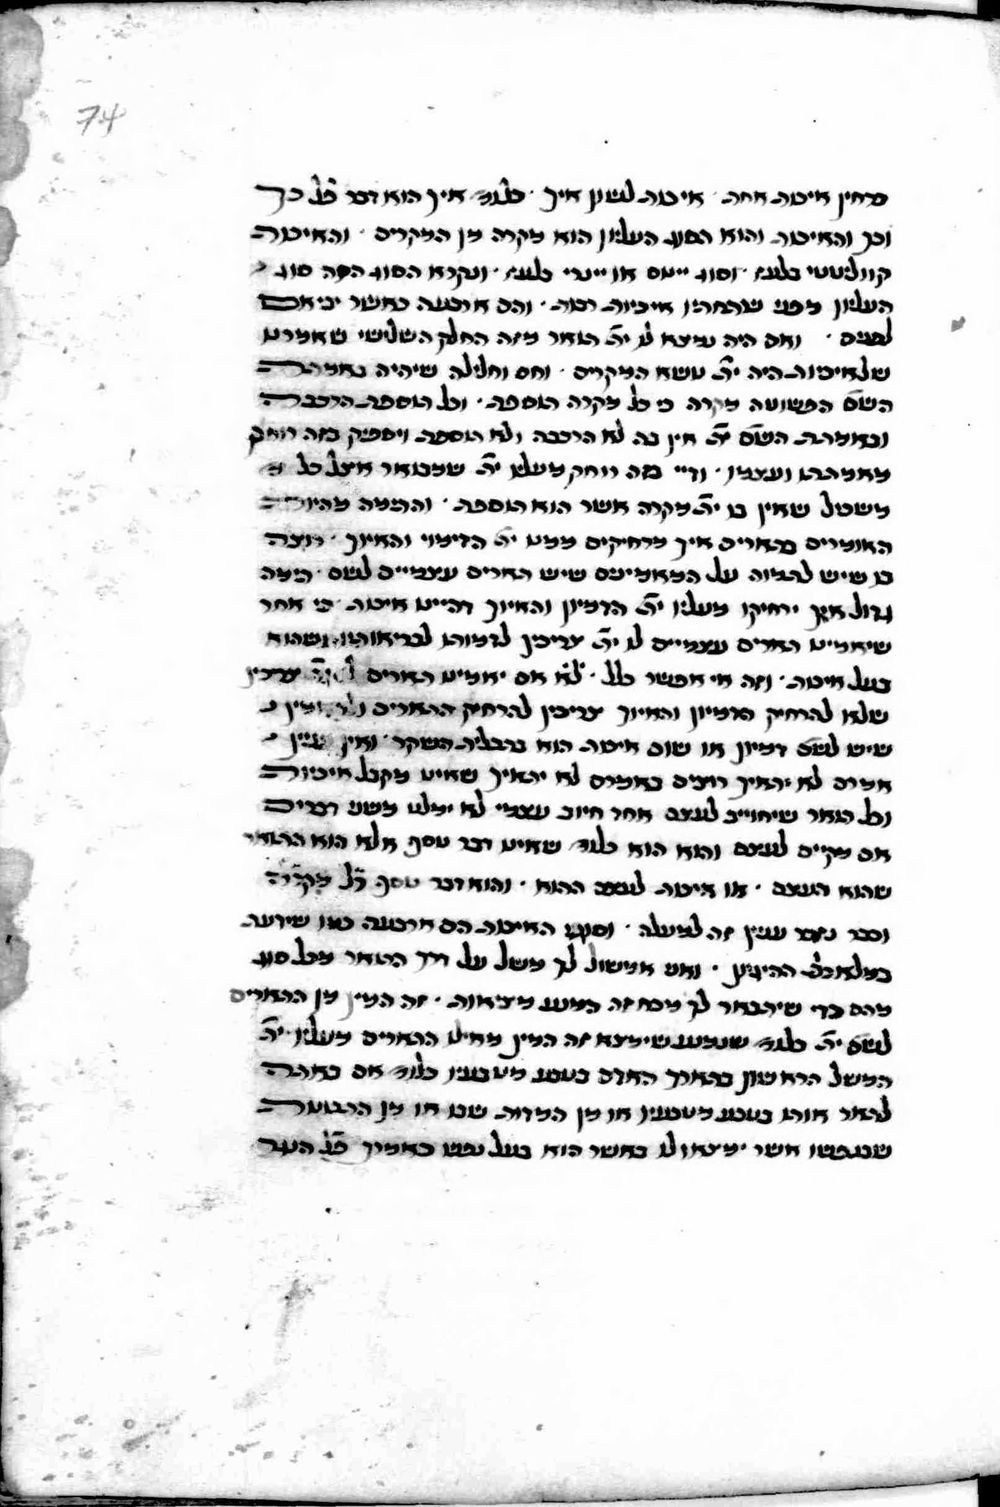 74
מרחין איכות אחת · איכות לשון איך · כלומ' איך הוא דבר פל' כך
וכך והאיכות והוא הסוג העליון הוא מקרה מן המקרים · והאיכות
קווליטטי בלעז · וסוג יינוס או יינרי בלעז · ונקרא הסוג הזה סוג
העליון מפני שתחתיו איכיות רבות · והם ארבעה כאשר יביאם
לפנים · ואם היה נמצא לו ית' תואר מזה החלק השלישי שאמרנו
שלאיכות היה ית' נושא המקרים · וחס וחלילה שיהיה באמתת
השם הפשוטה מקרה כי כל מקרה תוספת · וכל תוספת הרכבה
ובאמתת השם ית' אין בה לא הרכבה ולא תוספת ויספיק בזה רוחק
מאמתתו ועצמו · ודיי בזה רוחק מעליו ית' שמבואר אצל כל
משכיל שאין בו ית' מקרה אשר הוא תוספת · והתימה מהיות
האומרים בתארים איך מרחיקים ממנו ית' הדימוי והאיוך · רוצה
בו שיש לתמוה על המאמינים שיש תארים עצמיים לשם · תימה
גדול איך ירחיקו מעליו ית' הדמיון והאיוך דהיינו איכות · כי אחר
שיאמינו תארים עצמיים לו ית' צריכין לדמותו לבריאותיו ושהוא
בעל איכות · וזה אי אפשר כלל · לא אם יאמינו תארים לו ית' צריכין
שלא להרחיק הדמיון והאיוך צריכין להרחיק התארים
שיש לשם דמיון או שום איכות הוא בתכלית השקר · ואין עניין
אמרם לא יתאיך רוצים באמרם לא יתאיך שאינו מקבל איכיות
וכל תואר שיחוייב לעצם אחר חיוב עצמי לא ימלט משני דברים
אם מקיים לעצם והוא הוא כלומ' שאינו דבר נוסף אלא הוא התואר
שהוא העצם · או איכות לעצם ההוא · והוא דבר נוסף ר"ל מקרה
וכבר נאמר עניין זה למעלה · וסוגי האיכות הם ארבעה כמו שידעת
במלאכת ההיגיון · ואני אמשול לך משל על דרך התואר מכל סוג
מהם כדי שיתבאר לך מכח זה המנע מציאות · זה המין מן התארים
לשם ית' כלומ' שנמנע שימצא זה המין מאילו התארים מעליו ית'
המשל הראשון כתארך האדם בטבע מטבעיו כלומ' אם באתה
לתאר אותו בטבע מטבעיו או מן המדות שבו או מן התכונות
שבנפשו אשר ימצאו לו באשר הוא בעל נפש כאמרך פל' הנגר